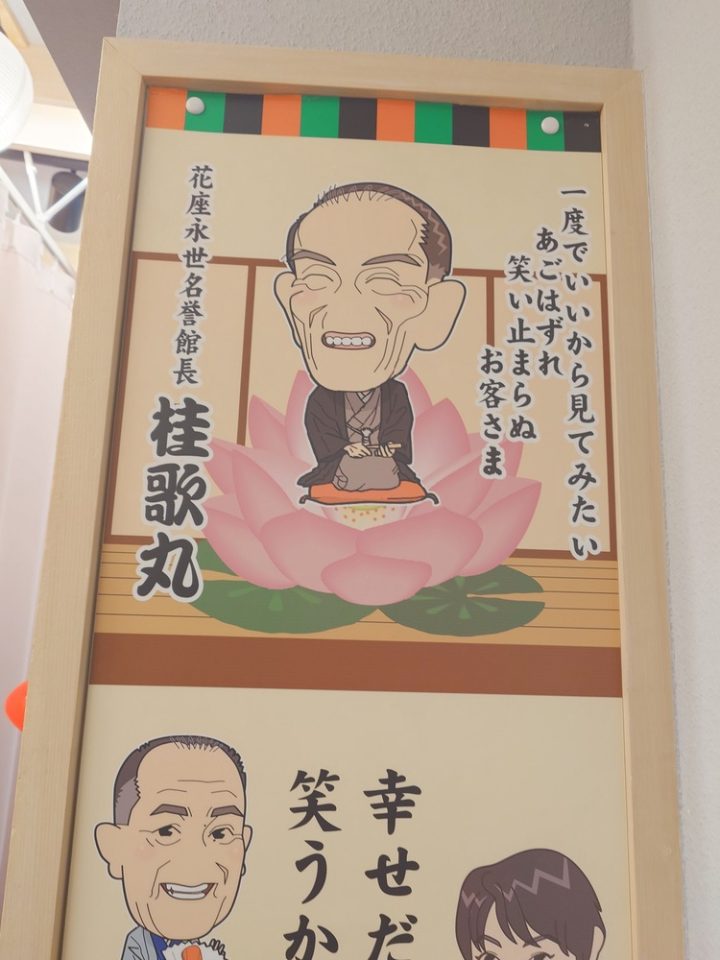 一度でいいから見てみたい
あごはずれ
笑い止まらぬ
お客さま
花座永世名誉館長
桂歌丸
幸せだ
笑うか